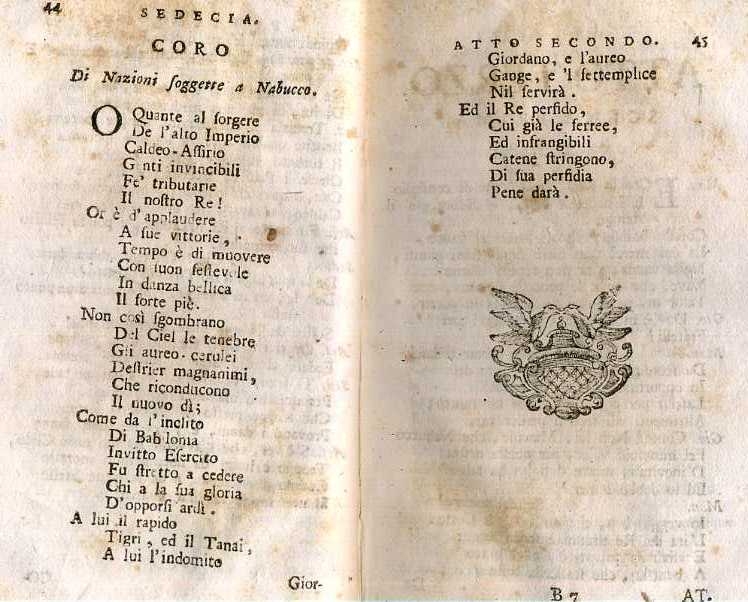 44
SEDECIA.
CORO
Di Nazioni ſoggette a Nabucco.
O Quante al ſorgere
De l'alto Imperio
Caldeo-Aſſirio
G nti invincibili
Fe' tributarie
Il noſtro Re!
Or è d'applaudere
A ſue vittorie,
Tempo è di muovere
Con ſuon feſtevole
In danza bellica
Il forte piè.
Non così ſgombrano
Del Ciel le tenebre
Gli aureo-cerulei
Deſtrier magnanimi,
Che riconducono
Il nuovo dì;
Come da l'inclito
Di Bab lonia
Invitto Eſercito
Fu ſtretto a cedere
Chi a la ſua gloria
D'opporſi ardì.
A lui il rapido
Tigri, ed il Tanai,
A lui l'indomito
Gior-
ATTO SECONDO. 45
Giordano, e l'aureo
Gange, e 'l ſettemplice
Nil ſervirà.
Ed il Re perfido,
Cui già le ferree,
Ed infrangibili
Catene ſtringono,
Di ſua perfidia
Pene darà.
B 7 AT.